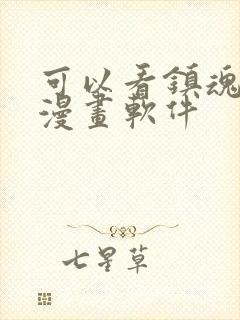 可以看鎮魂
漫畫軟件
七星草